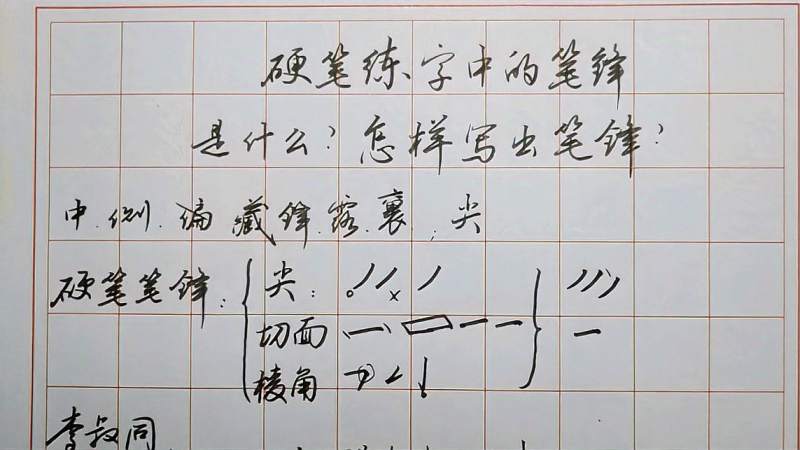 硬笔练字中的笔锋
是什么？怎样写出笔锋？
中.侧.偏 藏锋.露.裹；尖
硬笔笔锋：
尖：
切面
棱角
李叔同